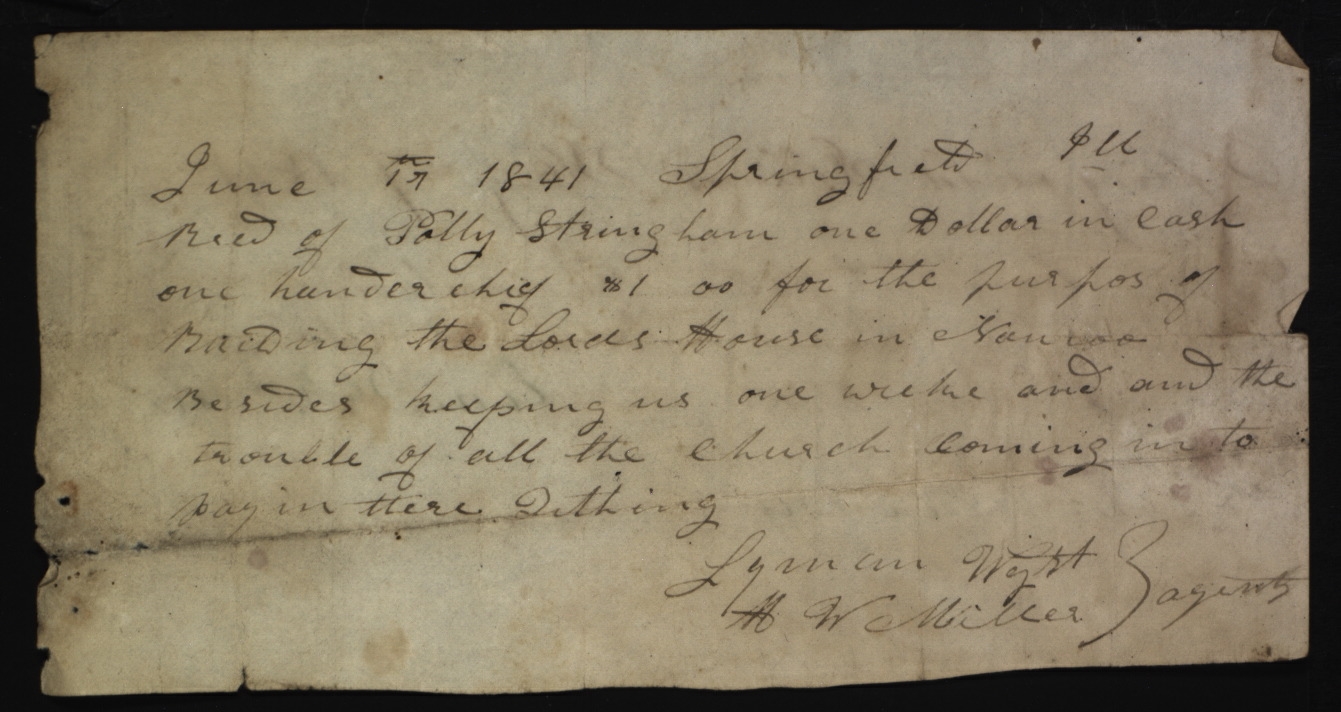 June 17th 1841 Springfield Ill
Recd of Polly Stringham one Dollar in Cash
one handerchief $1 00 for the purpos of
Building the Lords House in Nauvoo
Besides keeping us one weeke and and the
trouble of all the Church Coming in to
pay in there Tithing
Lyman Wight
H W Miller } agents